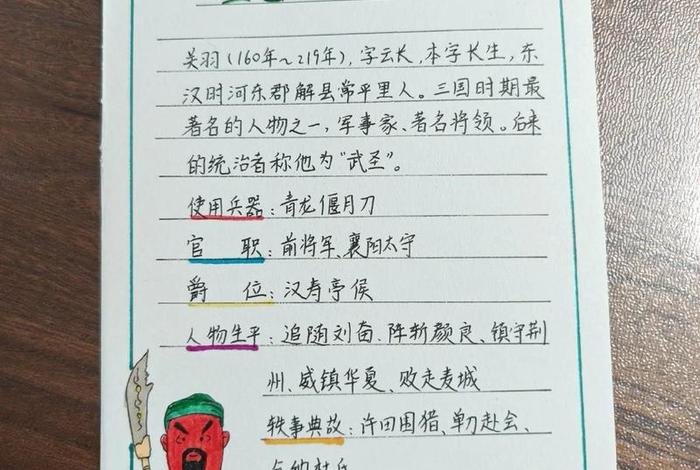 关羽(160年~219年),字云长,本字长生,东
汉时河东郡解县常平里人。三国时期最
著名的人物之一,军事家、著名将领。后来
的统治者称他为“武圣”。
使用兵器:青龙偃月刀
官 职:前将军、襄阳太守
爵 位:汉寿亭侯
人物生平:追随刘奋、阵斩颜良、镇守荆
州、威镇华夏、败走麦城
轶事典故:许田围猎、单刀赴会、